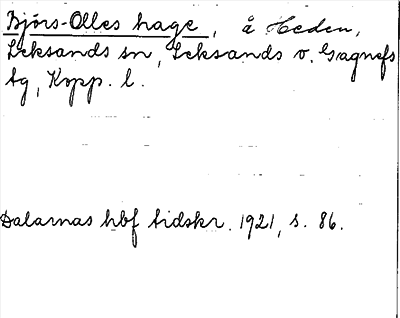 Björs-Olles hage, å Heden,
Leksands sn, Leksands o. Gagnefs
tg, Kopp. l.
Dalarnas hbf tidskr. 1921, s. 86.